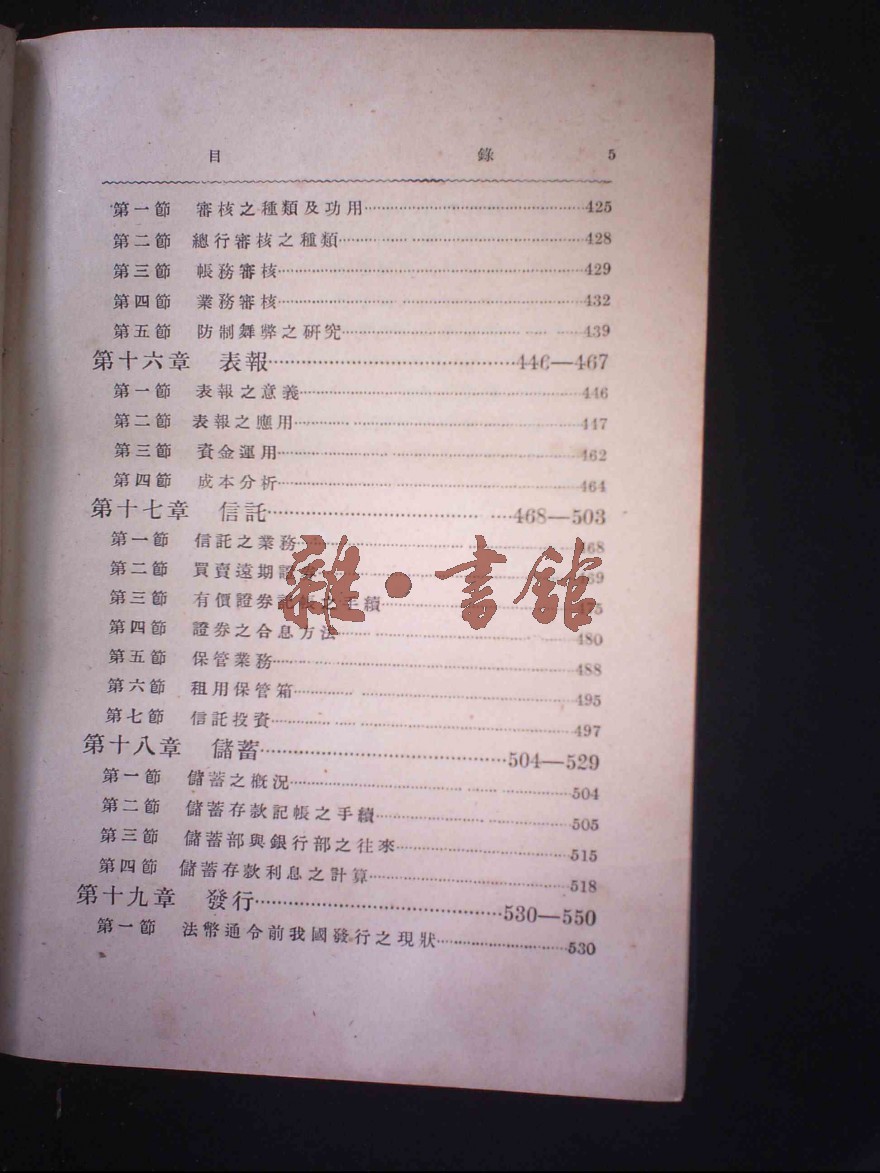 目 錄 5
第一節 審核之種類及功用……425
第二節 總行審核之種類……428
第三節 帳務審核……429
第四節 業務審核……432
第五節 防制舞弊之研究……439
第十六章 表報……446—467
第一節 表報之意義……446
第二節 表報之應用……447
第三節 資金運用……462
第四節 成本分析……464
第十七章 信託……468—503
第一節 信託之業務……468
第二節 買賣遠期證……469
第三節 有價證券記帳之手續……475
第四節 證券之合息方法……480
第五節 保管業務……488
第六節 租用保管箱……495
第七節 信託投資……497
第十八章 儲蓄……504—529
第一節 儲蓄之概況……504
第二節 儲蓄存款記帳之手續……505
第三節 儲蓄部與銀行部之往來……515
第四節 儲蓄存款利息之計算……518
第十九章 發行……530—550
第一節 法幣通令前我國發行之現狀……530
雜·書館